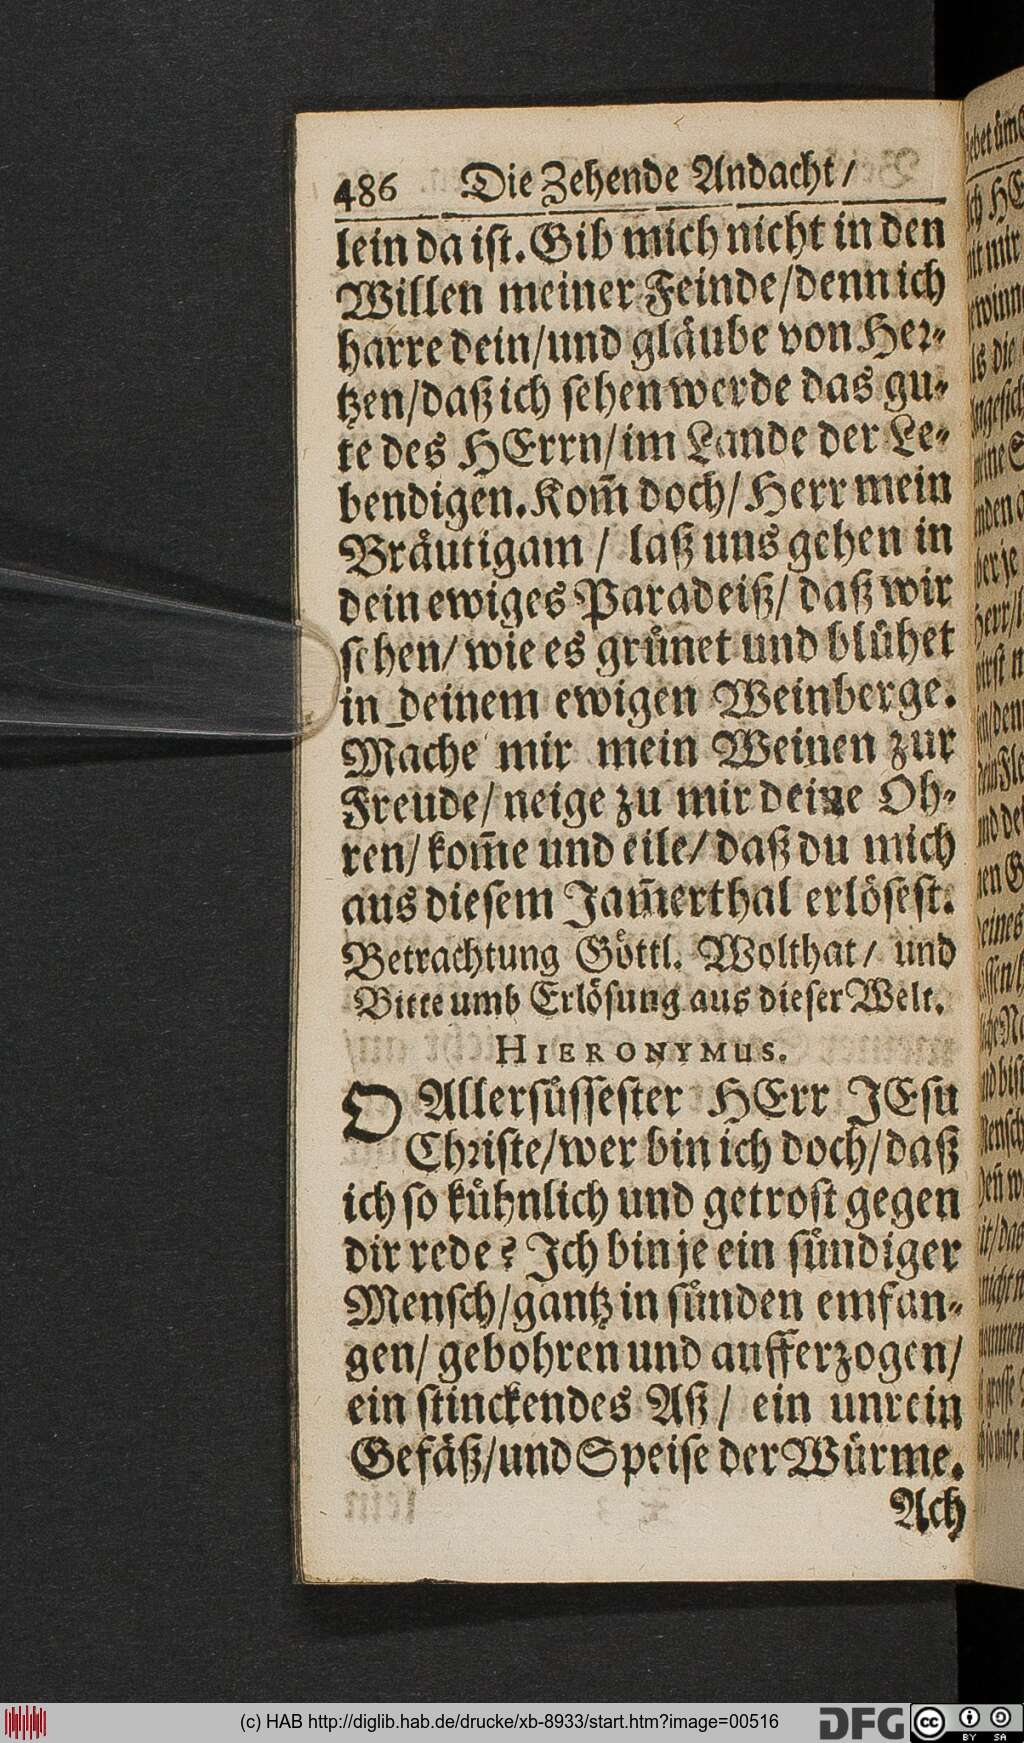 486 Die Zehende Andacht /
lein da ist. Gib mich nicht in den
Willen meiner Feinde / denn ich
harre dein / und glaͤube von Her⸗
tzen / daß ich sehen werde das gu⸗
te des HErrn / im Lande der Le⸗
bendigen. Kom̃ doch / Herr mein
Braͤutigam / laß uns gehen in
dein ewiges Paradeiß / daß wir
sehen / wie es gruͤnet und bluͤhet
in deinem ewigen Weinberge.
Mache mir mein Weinen zur
Freude / neige zu mir deine Oh⸗
ren / kom̃e und eile / daß du mich
aus diesem Jam̃erthal erloͤsest.
Betrachtung Goͤttl. Wolthat / und
Bitte umb Erloͤsung aus dieser Welt.
HIERONYMUS.
O Allersuͤssester HErr JEsu
Christe / wer bin ich doch / daß
ich so kuͤhnlich und getrost gegen
dir rede? Jch bin je ein suͤndiger
Mensch / gantz in suͤnden emfan⸗
gen / gebohren und aufferzogen /
ein stinckendes Aß / ein unrein
Gefaͤß / und Speise der Wuͤrme.
Ach
(c) HAB http://diglib.hab.de/drucke/xb-8933/start.htm?image=00516
DFG cc BY SA